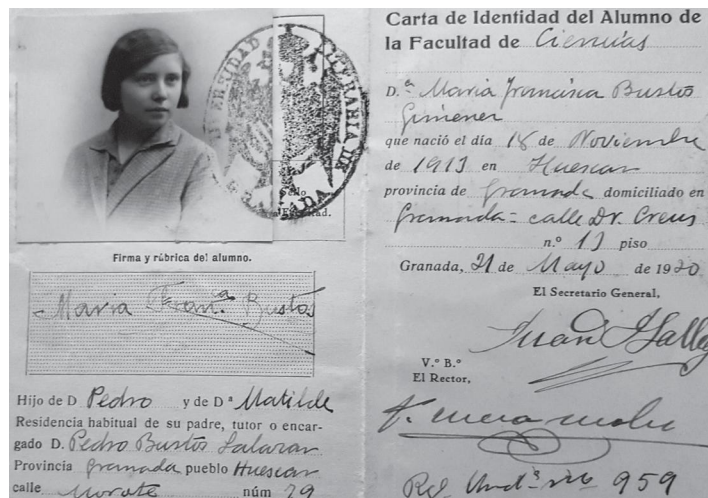 UNIVERSIDAD LITERARIA DE GRANADA
Sello
Facultad.
Firma y rúbrica del alumno.
Maria Fran.ca Bustos
Hijo de D Pedro y de Dª Matilde
Residencia habitual de su padre, tutor o encar-
gado D. Pedro Bustos Salazar
Provincia Granada pueblo Huescar
calle Morote núm 29
Carta de Identidad del Alumno de
la Facultad de Ciencias
D.ª Maria Francisca Bustos
Gimener
que nació el día 18 de Noviembre
de 1913 en Huescar
provincia de Granada domiciliado en
Granada = calle Dr. Creus
n.º 13 piso
Granada, 21 de Mayo de 1930
El Secretario General,
Juan
V.º B.º
El Rector,
959